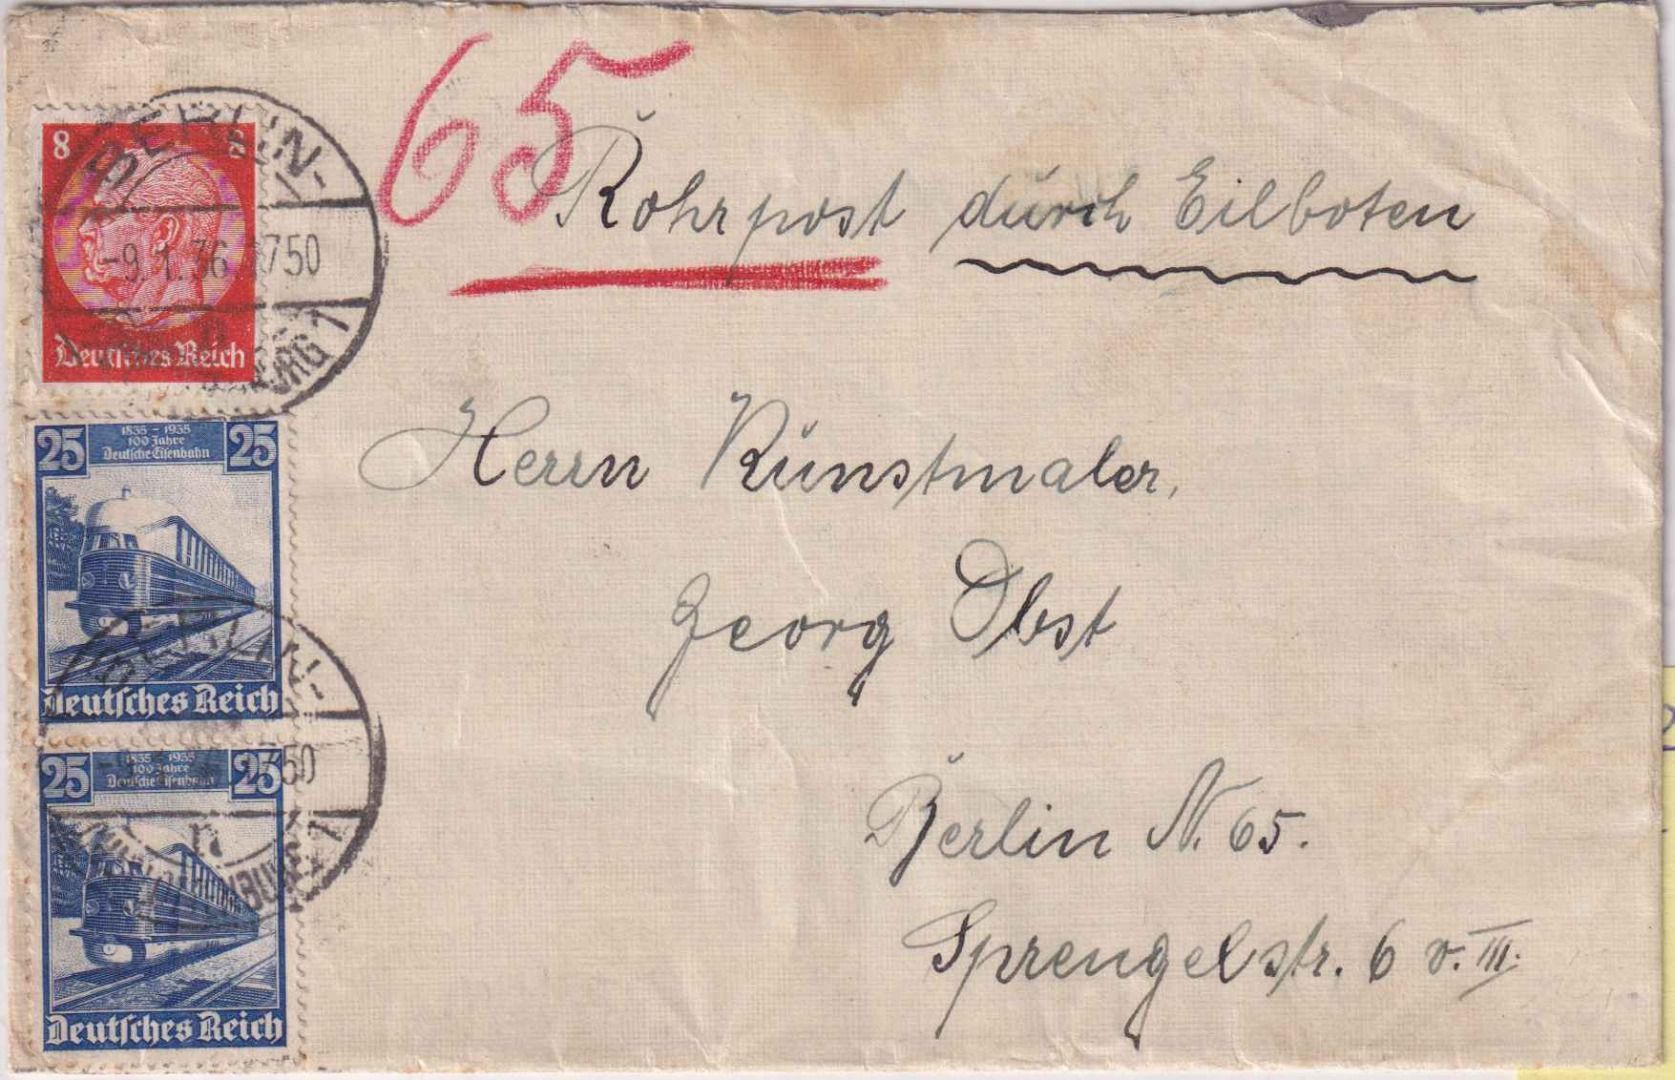 65
Rohrpost durch Eilboten
8 8
BERLIN-
-9.1.36 1750
n
CHARLOTTENBURG 1
Deutsches Reich
Herrn Kunstmaler,
Georg Obst
Berlin N. 65.
Sprengelstr. 6 v. III.
25 1835 - 1935 25
100 Jahre
Deutsche Eisenbahn
BERLIN-
Deutsches Reich
25 1835 - 1935 25
100 Jahre
Deutsche Eisenbahn
50
n
1
Deutsches Reich